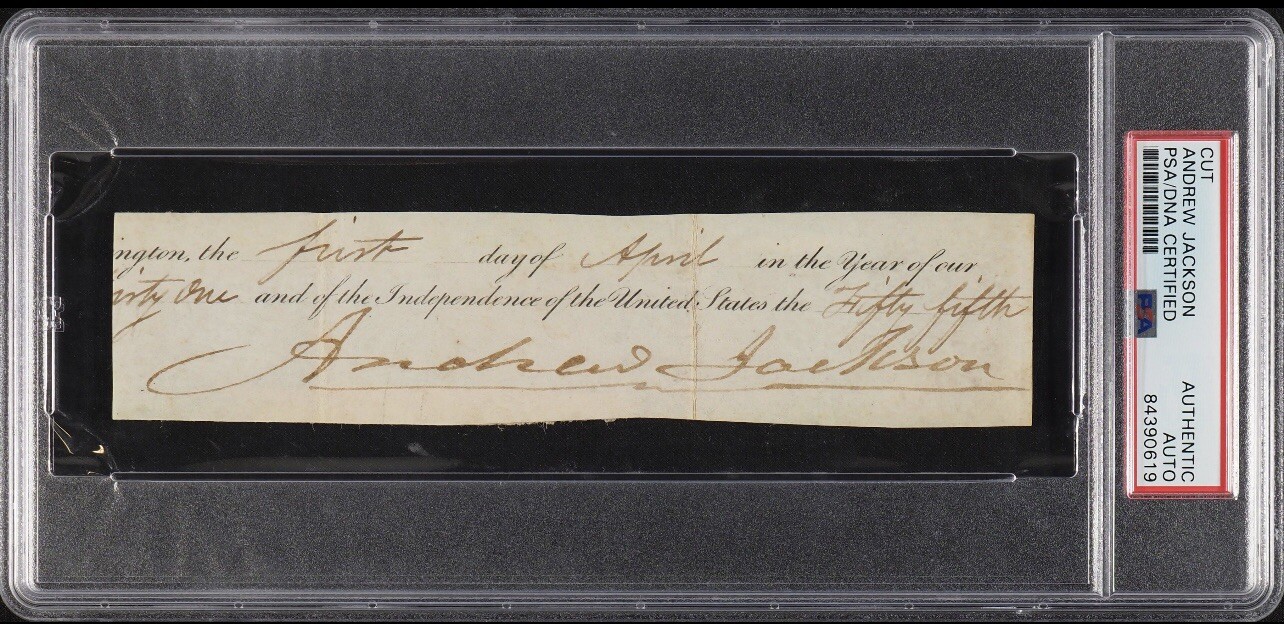 ington, the first day of April in the Year of our
irty One and of the Independence of the United States the Fifty fifth
Andrew Jackson
CUT
ANDREW JACKSON
PSA/DNA CERTIFIED
AUTHENTIC
AUTO
84390619
PSA